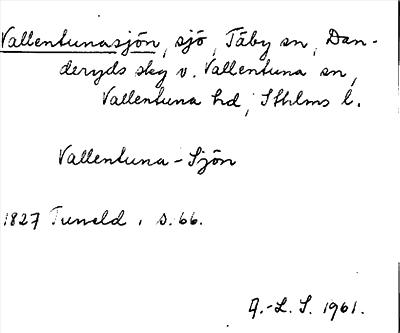 Vallentunasjön, sjö, Täby sn, Dan-
deryds skg o. Vallentuna sn,
Vallentuna hd, Sthlms l.
Vallentuna-Sjön
1827 Tuneld, s. 66.
A.-L. S. 1961.